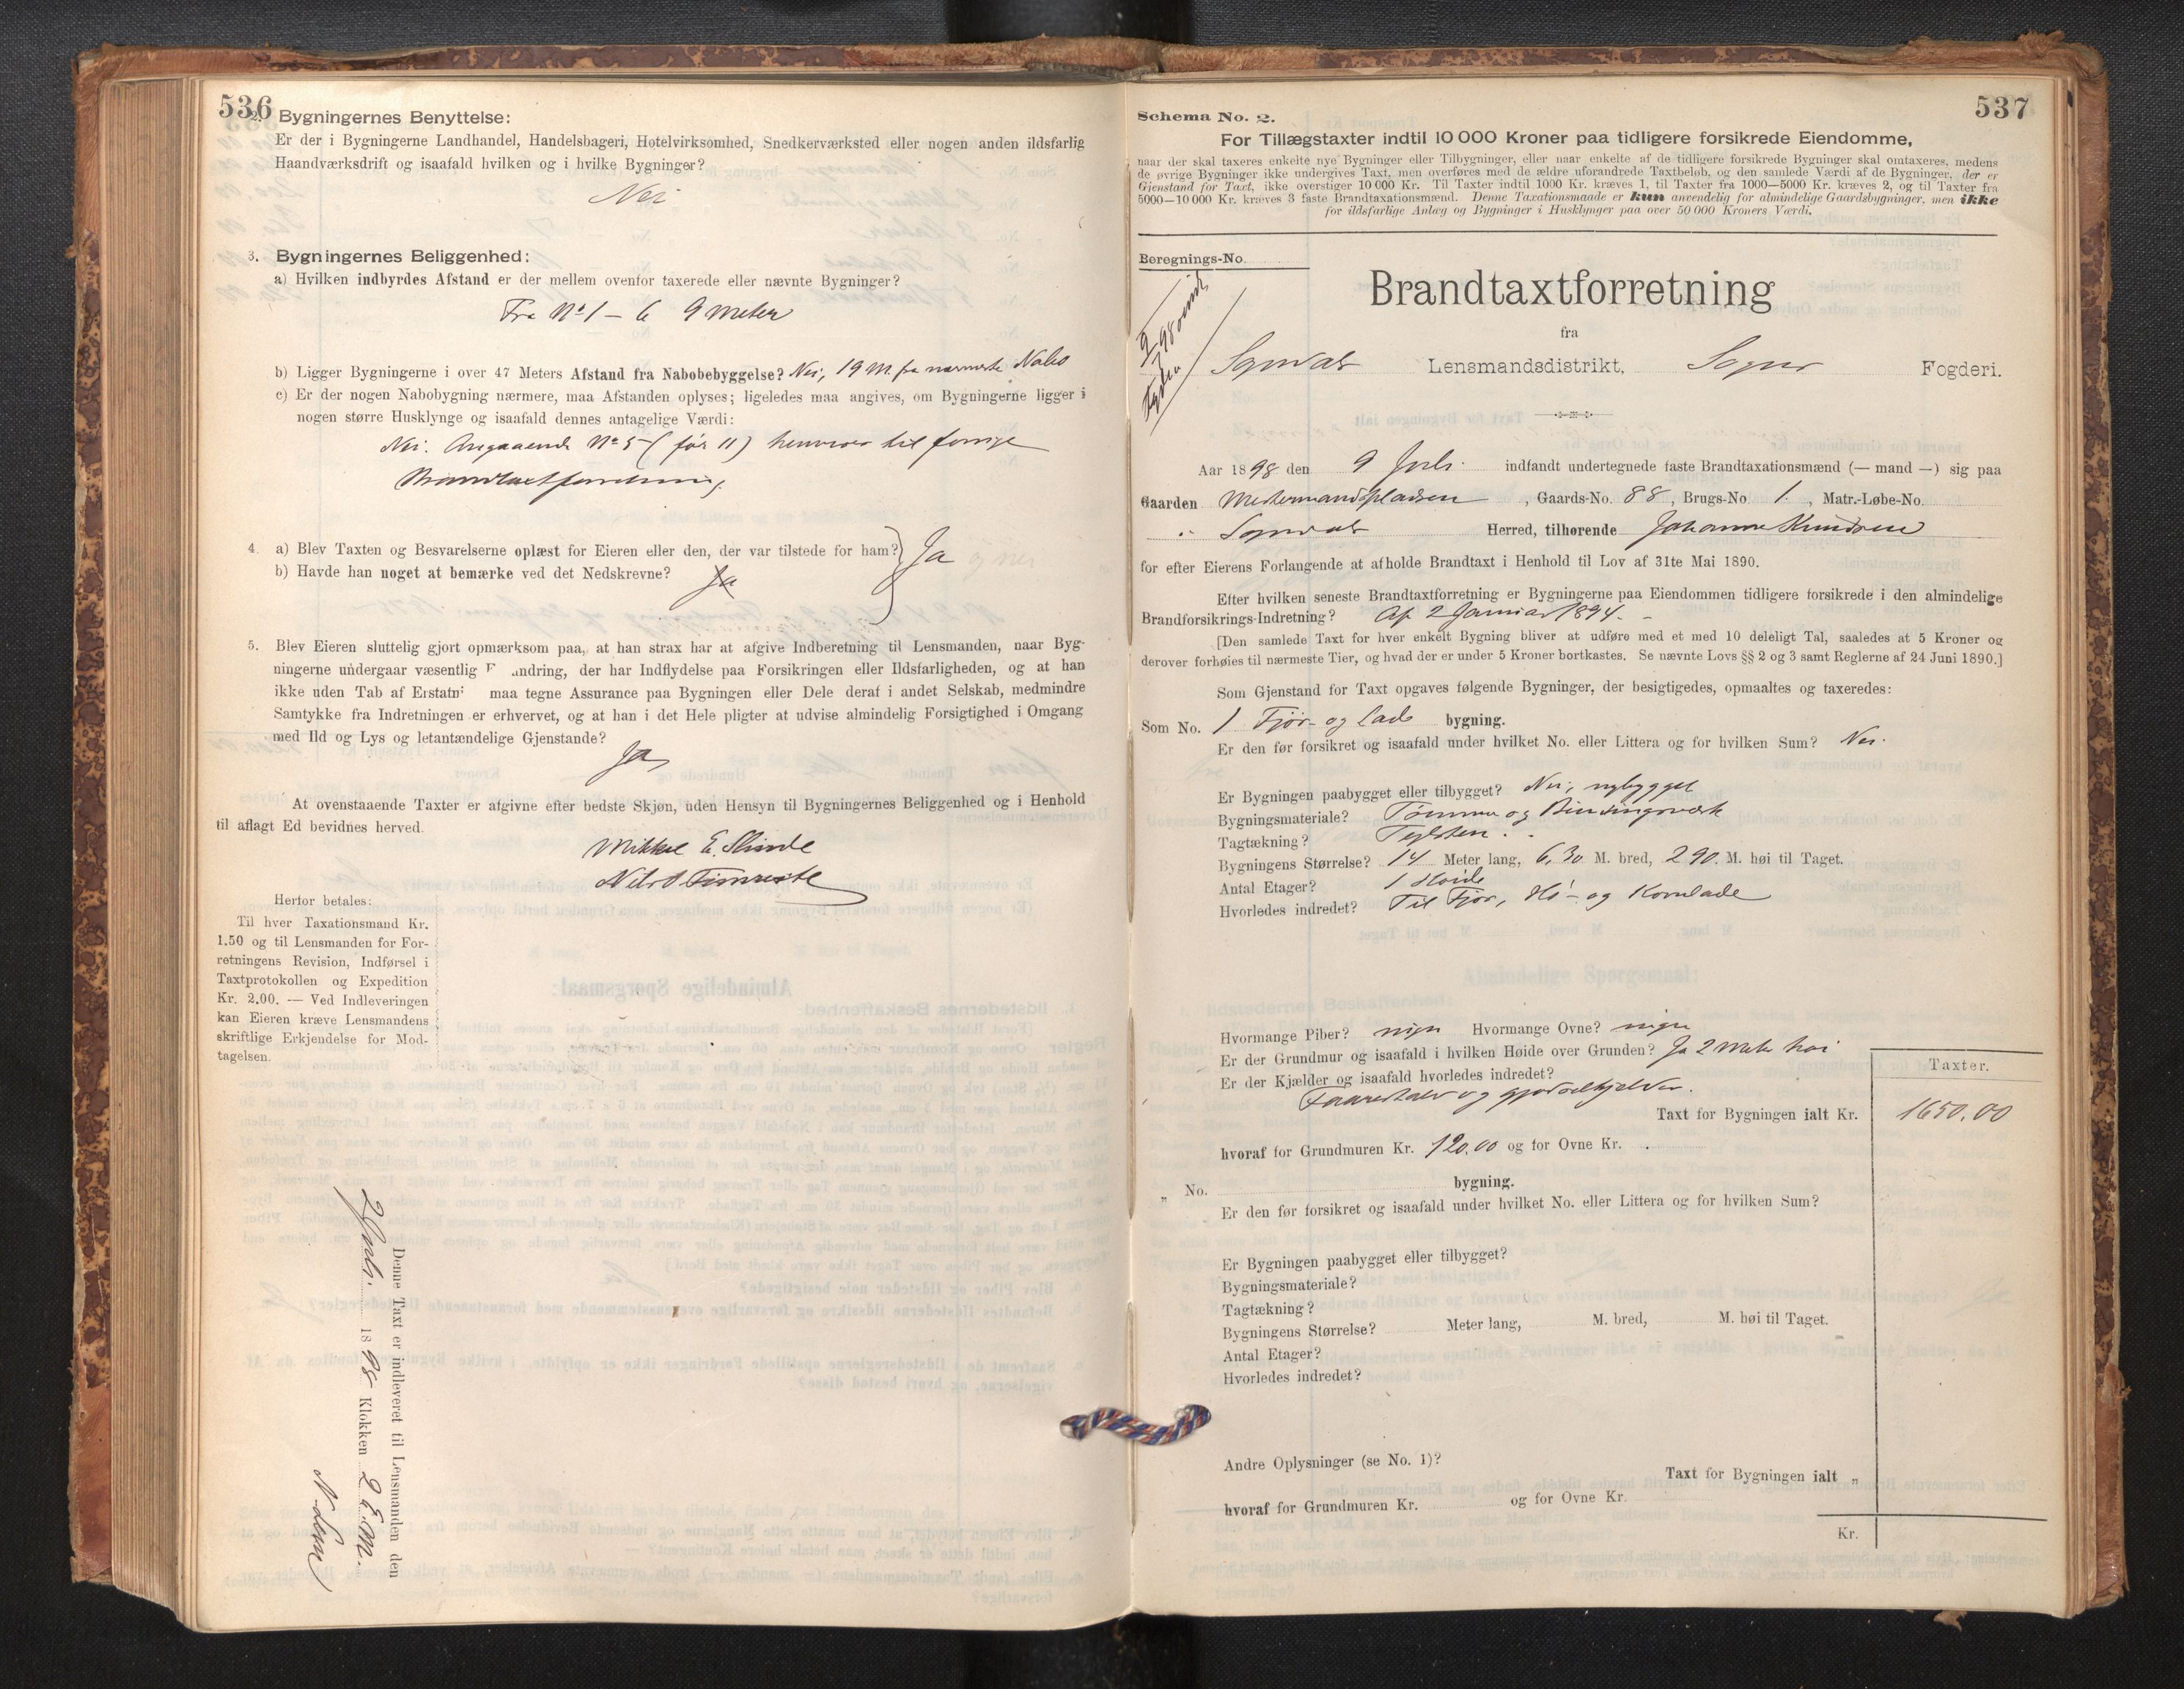 536
2. Bygningernes Benyttelse:
Er der i Bygningerne Landhandel, Handelsbageri, Hotelvirksomhed, Snedkerværksted eller nogen anden ildsfarlig
Haandværksdrift og isaafald hvilken og i hvilke Bygninger?
Nei
3. Bygningernes Beliggenhed:
a) Hvilken indbyrdes Afstand er der mellem ovenfor taxerede eller nævnte Bygninger?
Fra No 1 - 6 9 Meter
b) Ligger Bygningerne i over 47 Meters Afstand fra Nabobebyggelse? Nei, 19 M. fra nærmeste Nabo
c) Er der nogen Nabobygning nærmere, maa Afstanden oplyses; ligeledes maa angives, om Bygningerne ligger i
nogen større Husklynge og isaafald dennes antagelige Værdi:
Nei. Angaaende No 5 (før 11) henvises til forrige
Brandtaxtforretning.
4. a) Blev Taxten og Besvarelserne oplæst for Eieren eller den, der var tilstede for ham? Ja
b) Havde han noget at bemærke ved det Nedskrevne? Ja
5. Blev Eieren sluttelig gjort opmærksom paa, at han strax har at afgive Indberetning til Lensmanden, naar Byg-
ningerne undergaar væsentlig F andring, der har Indflydelse paa Forsikringen eller Ildsfarligheden, og at han
ikke uden Tab af Erstatni maa tegne Assurance paa Bygningen eller Dele deraf i andet Selskab, medmindre
Samtykke fra Indretningen er erhvervet, og at han i det Hele pligter at udvise almindelig Forsigtighed i Omgang
med Ild og Lys og letantændelige Gjenstande?
Ja
At ovenstaaende Taxter er afgivne efter bedste Skjøn, uden Hensyn til Bygningernes Beliggenhed og i Henhold
til aflagt Ed bevidnes herved.
Mikkel E. Slinde
Nils O Timreite
Herfor betales:
Til hver Taxationsmand Kr.
1.50 og til Lensmanden for For-
retningens Revision, Indførsel i
Taxtprotokollen og Expedition
Kr. 2.00. — Ved Indleveringen
kan Eieren kræve Lensmandens
skriftlige Erkjendelse for Mod-
tagelsen.
Denne Taxt er indleveret til Lensmanden den
2 Juli 1898 Klokken 2 E.M.
537
Schema No. 2.
For Tillægstaxter indtil 10 000 Kroner paa tidligere forsikrede Eiendomme,
naar der skal taxeres enkelte nye Bygninger eller Tilbygninger, eller naar enkelte af de tidligere forsikrede Bygninger skal omtaxeres, medens
de øvrige Bygninger ikke undergives Taxt, men overføres med de ældre uforandrede Taxtbeløb, og den samlede Værdi af de Bygninger, der er
Gjenstand for Taxt, ikke overstiger 10 000 Kr. Til Taxter indtil 1000 Kr. kræves 1, til Taxter fra 1000—5000 Kr. kræves 2, og til Taxter fra
5000—10 000 Kr. kræves 3 faste Brandtaxationsmænd. Denne Taxationsmaade er kun anvendelig for almindelige Gaardsbygninger, men ikke
for ildsfarlige Anlæg og Bygninger i Husklynger paa over 50 000 Kroners Værdi.
Beregnings-No.
Brandtaxtforretning
fra
Sogndals Lensmandsdistrikt, Sogns Fogderi.
Aar 1898 den 9 Juli indfandt undertegnede faste Brandtaxationsmænd (— mand —) sig paa
Gaarden Mestermandspladsen, Gaards-No. 88, Brugs-No 1., Matr.-Løbe-No.
Sogndals Herred, tilhørende Johannes Knudsen
for efter Eierens Forlangende at afholde Brandtaxt i Henhold til Lov af 31te Mai 1890.
Efter hvilken seneste Brandtaxtforretning er Bygningerne paa Eiendommen tidligere forsikrede i den almindelige
Brandforsikrings-Indretning? Af 2 Januar 1894.
[Den samlede Taxt for hver enkelt Bygning bliver at udføre med et med 10 deleligt Tal, saaledes at 5 Kroner og
derover forhøies til nærmeste Tier, og hvad der er under 5 Kroner bortkastes. Se nævnte Lovs §§ 2 og 3 samt Reglerne af 24 Juni 1890.]
Som Gjenstand for Taxt opgaves følgende Bygninger, der besigtigedes, opmaaltes og taxeredes:
Som No. 1 Fjøs- og lade bygning.
Er den før forsikret og isaafald under hvilket No. eller Littera og for hvilken Sum? Nei.
Er Bygningen paabygget eller tilbygget? Nei, nybygget
Bygningsmateriale? Tømmer og Bindingsværk
Tagtækning? Teglsten.
Bygningens Størrelse? 14 Meter lang, 6,30 M. bred, 2.90. M. høi til Taget.
Antal Etager? 1 Høide
Hvorledes indredet? Til Fjøs, Hø- og Kornlade
Hvormange Piber? ingen Hvormange Ovne? ingen
Er der Grundmur og isaafald i hvilken Høide over Grunden? Ja 2 Meter høi
Er der Kjælder og isaafald hvorledes indredet?
Faarestald og gjødselkjelder.
Taxter.
Taxt for Bygningen ialt Kr. 1650,00
hvoraf for Grundmuren Kr. 120.00 og for Ovne Kr. .
„ No. bygning.
Er den før forsikret og isaafald under hvilket No. eller Littera og for hvilken Sum?
Er Bygningen paabygget eller tilbygget?
Bygningsmateriale?
Tagtækning?
Bygningens Størrelse? Meter lang, M. bred, M. høi til Taget.
Antal Etager?
Hvorledes indredet?
Andre Oplysninger (se No. 1)?
Taxt for Bygningen ialt „
hvoraf for Grundmuren Kr. og for Ovne Kr.
Kr.